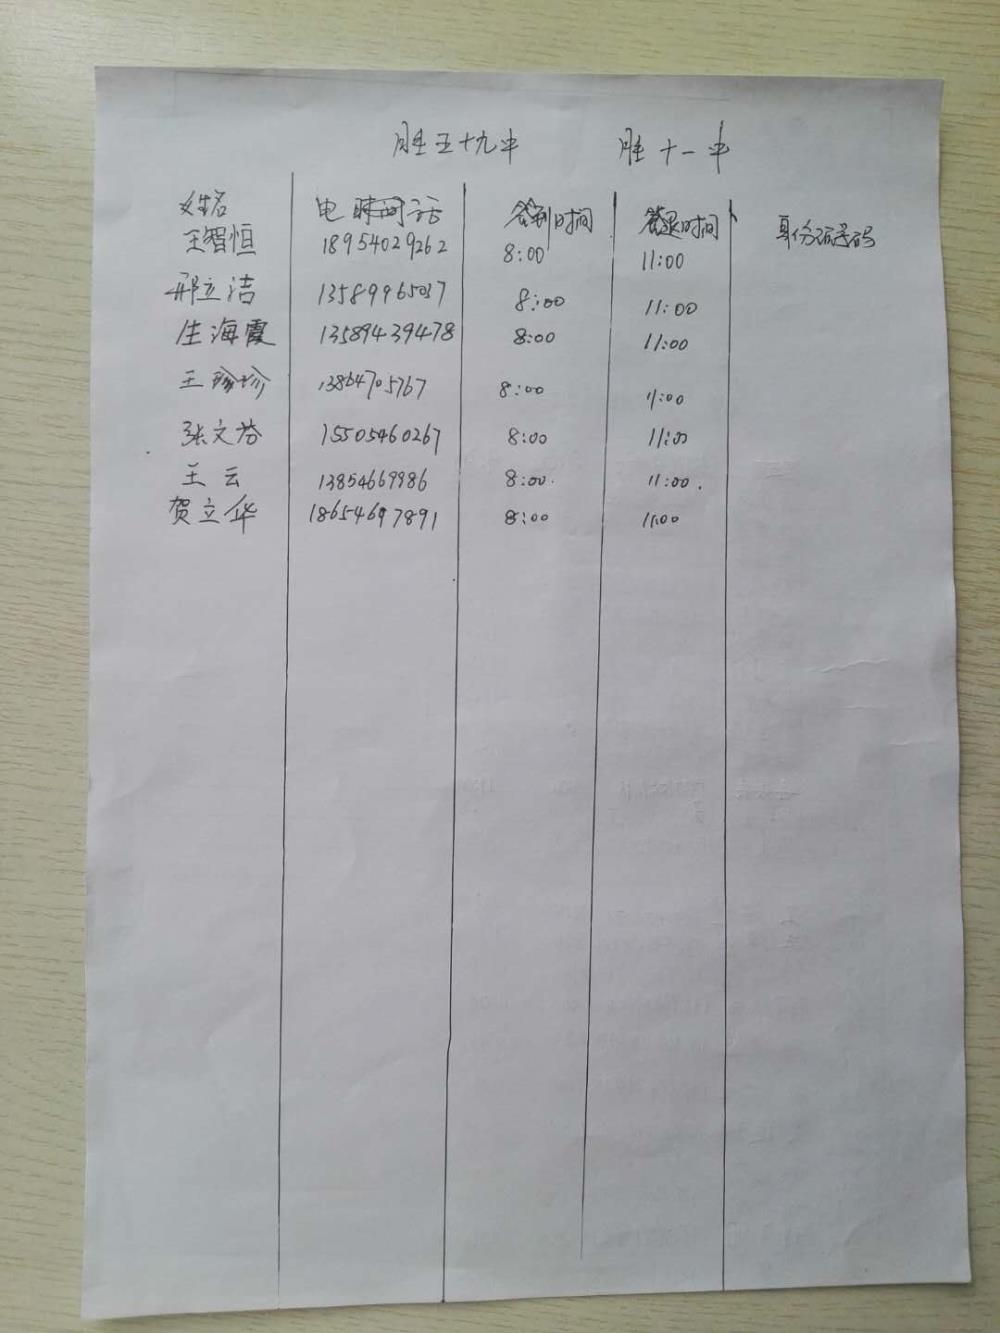 胜五十九中 胜十一中
姓名 电话 签到时间 签退时间 身份证号码
王智恒 18954029262 8:00 11:00
邢立洁 13589965037 8:00 11:00
庄海霞 13589439478 8:00 11:00
王珍珍 13864705767 8:00 11:00
张文芬 15505460267 8:00 11:00
王云 13854669986 8:00. 11:00.
贺立华 18654697891 8:00 11:00